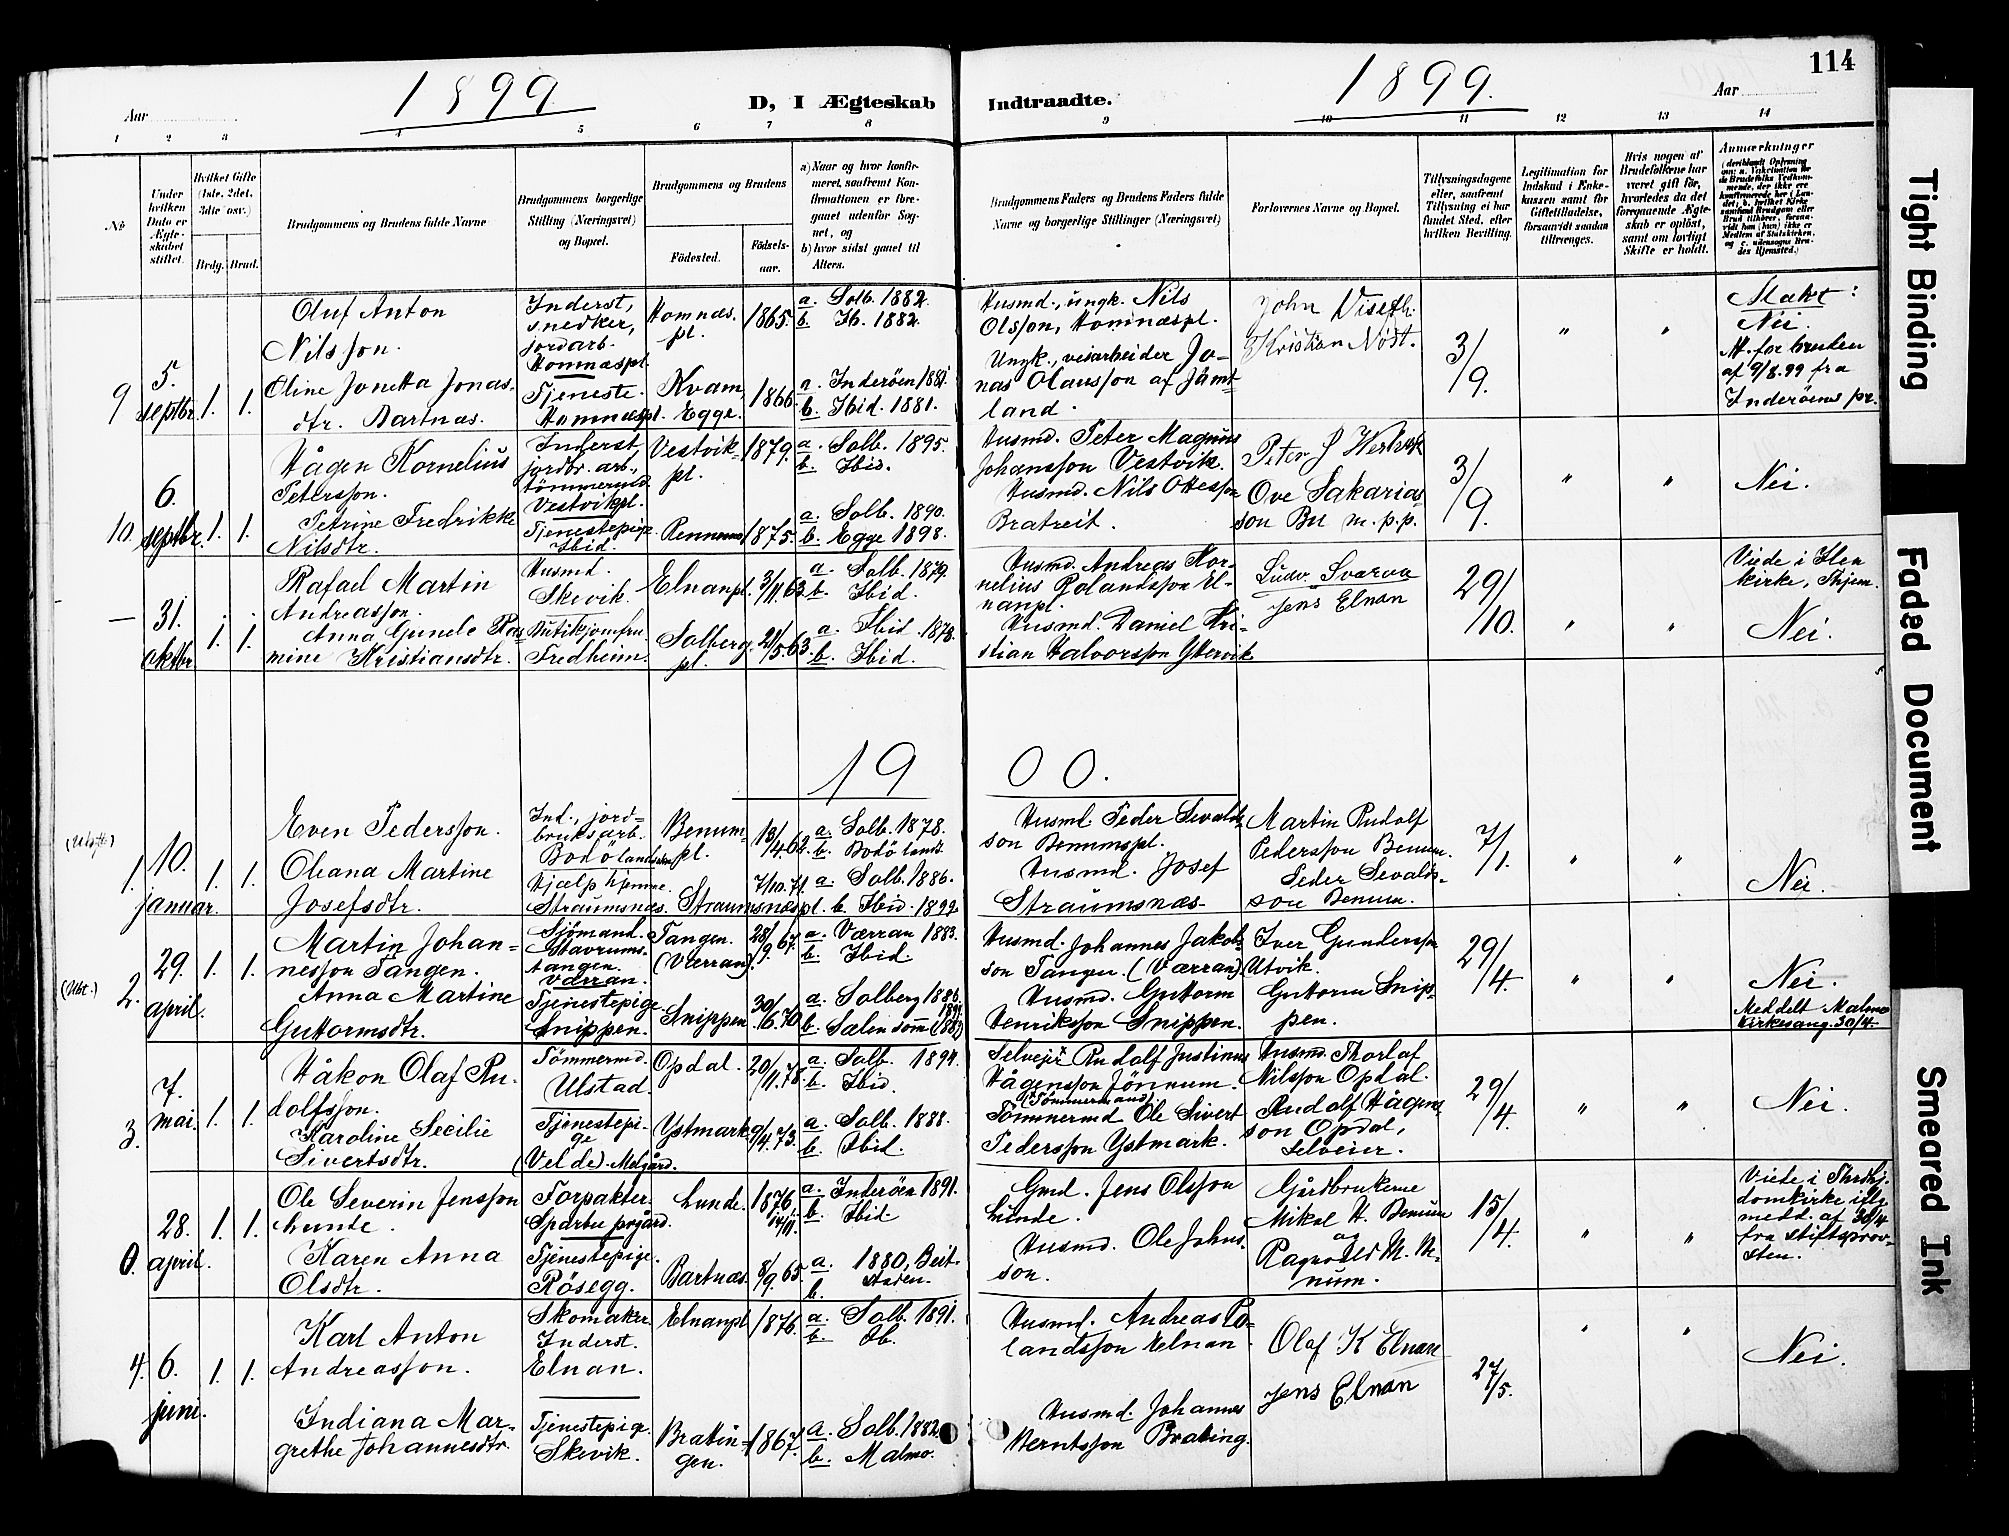 114
1899
1899.
Aar
D, I Ægteskab
Indtraadte.
Aar
1 2 3 4 5 6 7 8 9 10 11 12 13 14
No
Under hvilken Dato er Ægteskabet stiftet.
Hvilket Gifte (1ste, 2det, 3die osv.)
Brdg. Brud.
Brudgommens og Brudens fulde Navne
Brudgommens borgerlige Stilling (Næringsvei) og Bopæl.
Brudgommens og Brudens
Födested.
Födsels-aar.
a) Naar og hvor konfirmeret, saafremt Konfirmationen er foregaaet udenfor Sognet, og
b) hvor sidst gaaet til Alters.
Brudgommens Faders og Brudens Faders fulde Navne og borgerlige Stillinger (Næringsvei)
Forlovernes Navne og Bopæl.
Tillysningsdagene eller, saafremt Tillysning ei har fundet Sted, efter hvilken Bevilling.
Legitimation for Indskud i Enkekassen samt for Giftetilladelse, forsaavidt saadan tiltrænges.
Hvis nogen af Brudefolkene har været gift för, hvorledes da det foregaaende Ægteskab er oplöst, samt om lovligt Skifte er holdt.
Anmærkninger
9
5. septbr.
1. 1.
Oluf Anton
Nilsson.
Oline Jonetta Jonas-
dtr. Bartnæs.
Inderst,
snedker,
jordarb.
Homnæspl.
Tjeneste.
Homnæspl.
Homnæs.
pl.
Kvam,
Egge.
1865.
1866.
a. Solb. 1882.
b. Ib. 1882.
a. Inderöen 1881.
b. Ibid. 1881.
Husmd., ungk. Nils
Olsson, Homnæspl.
Ungk., veiarbeider Jo-
nas Olausson af Jämt-
land.
John Viseth.
Kristian Nöst.
3/9.
" "
Makt:
Nei.
A. for bruden
af 9/8.99 fra
Inderöens pr.
10.
6. septbr.
1. 1.
Hågen Kornelius
Petersson.
Petrine Fredrikke
Nilsdtr.
Inderst,
jordbr. arb.,
tömmermd.
Vestvikpl.
Tjenestepige
Ibid.
Vestvik-
pl.
1879.
1875.
a. Solb. 1895.
b. Ibid.
a. Solb. 1890.
b. Egge 1898.
Husmd. Peter Magnus
Johansson Vestvik.
Husmd. Nils Ottesson
Bratreit.
Ove Sakarias-
son Bu m.p.p.
3/9.
" "
Nei.
—
31. oktbr.
1. 1.
Rafael Martin
Andreasson.
Anna Gunele Ras-
mine Kristiansdtr.
Husmd.
Skevik.
Butikjomfru
Fredheim.
Elnanpl.
Solberg
pl.
3/11.63.
21/5.63.
a. Solb. 1879.
b. Ibid.
a. Ibid 1878.
b. Ibid.
Husmd. Andreas Kor-
nelius Rolandsson El-
nanpl.
Husmd. Daniel Kri-
stian Halvorsson Ytervik
Ludv. Svarva
Jens Elnan
29/10.
" "
Viede i Sten
kirke, Thjem.
Nei.
19 00.
1.
10. januar.
1. 1.
Even Pedersson.
Oleana Martine
Josefsdtr.
Ind., jord-
bruksarb.
Bodö landsokn
Hjælp hjemme.
Straumsnæs.
Benum-
pl.
Straumsnæspl.
18/4.62.
7/10.71.
a. Solb. 1878.
b. Bodö lands.
a. Solb. 1886.
b. Ibid. 1899.
Husmd. Peder Sevalds-
son Benumspl.
Husmd. Josef
Straumsnæs.
Martin Rudolf
Pedersson Benum.
Peder Sevalds-
son Benum.
7/1.
" "
Nei.
2.
29. april.
1. 1.
Martin Johan-
nesson Tangen.
Anna Martine
Guttormsdtr.
Sjömand.
Stavrums-
tangen.
Værran.
Tjenestepige
Snippen.
Tangen.
(Værran)
Snippen
28/9.67.
30/6.70.
a. Værran 1883.
b. Ibid.
a. Solberg 1886.
Husmd. Johannes Jakob-
son Tangen. (Værran)
Husmd. Guttorm
Henriksson Snippen.
Iver Gundersson
Utvik.
Guttorm Snip-
pen.
29/4.
" "
Nei.
Meddelt Malmo
kirkesang. 30/4.
3.
7. mai.
1. 1.
Håkon Olaf Ru-
dolfsson.
Karoline Secilie
Sivertsdtr.
Tömmermd.
Ulstad.
Tjenestepi-
ge
(Velde) Melgård.
Opdal.
Ystmark
20/11.78.
9/4.73.
a. Solb. 1894.
b. Ibid.
a. Solb. 1888.
b. Ibid.
Selveier Rudolf Justinus
Hågensson Jönnum.
(Tömmermand)
Tömmermd Ole Sivert
Pedersson Ystmark.
Husmd. Thorlaf
Nilsson Opdal.
Rudolf Hågens-
son Opdal,
Selveier.
29/4.
" "
Nei.
0.
28. april.
1. 1.
Ole Severin Jensson
Lunde.
Karen Anna
Olsdtr.
Forpakter
Sparbu prgård.
Tjenestepige.
Rösegg.
Lunde.
Bartnæs.
1876
14/11.
8/9.65.
a. Inderöen 1891.
b. Ibid
a. 1880, Beit-
staden.
b.
Gmd. Jens Olsson
Lunde.
Husmd. Ole Johns-
son.
Gårdbrukerne
Mikal H. Benum
og
Ragnvald M. Be-
num.
15/4.
" "
Viede i Thrdhj.
domkirke ifl.
medd. af 30/4
fra stiftsprov-
sten.
4.
6. juni.
1. 1.
Karl Anton
Andreasson.
Indiana Mar-
grethe Johannesdtr.
Skomaker
Inderst.
Elnan.
Tjenestepige.
Skevik.
Elnanpl
Bratin-
gen.
1876.
1867.
a. Solb. 1891.
b. Ib.
a. Solb. 1882
b. Malmo.
Husmd. Andreas Ro-
landsson Elnan.
Husmd. Johannes
Berntsson Brating.
Olaf K Elnan
Jens Elnan
27/5.
" "
Nei.
Tight Binding
Faded Document
Smeared Ink